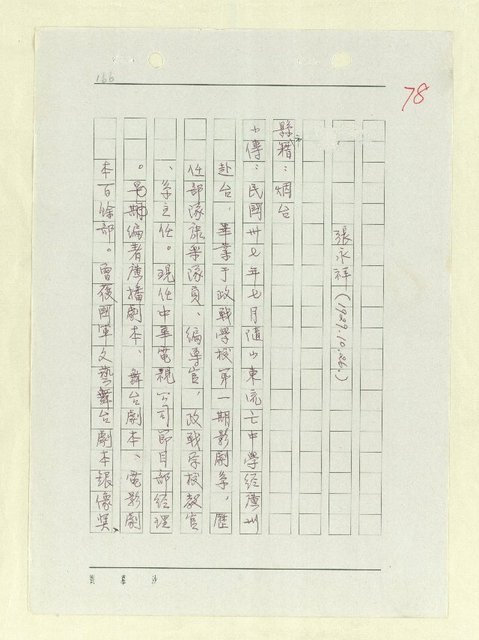 166
78
張永祥(1929.10.26.)
縣市籍：烟台
小傳：民國卅七年七月隨山東流亡中學經廣州
赴台，畢業于政戰學校第一期影劇系，歷
任部隊康樂隊員、編導官，政戰學校教官
、系主任。現任中華電視公司節目部經理
。編著廣播劇本、舞台劇本、電影劇
本百餘部。曾獲國軍文藝舞台劇本銀像獎、